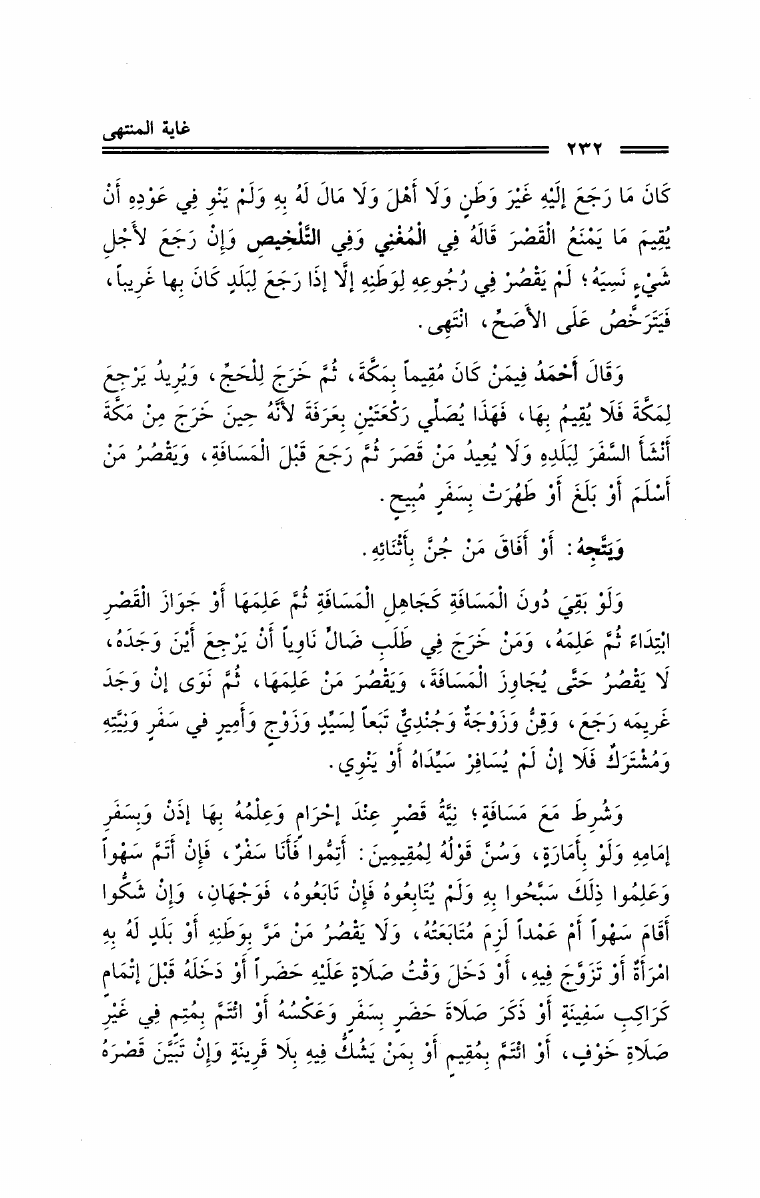 غاية المنتهى
٢٣٢
كَانَ مَا رَجَعَ إلَيْهِ غَيْرَ وَطَنٍ وَلَا أَهْلَ وَلَا مَالَ لَهُ بِهِ وَلَمْ يَنْوِ فِي عَوْدِهِ أَنْ
يُقِيمَ مَا يَمْنَعُ الْقَصْرَ قَالَهُ فِي الْمُغْنِي وَفِي التَّلْخِيصِ وَإِنْ رَجَعَ لأَجْلِ
شَيْءٍ نَسِيَهُ؛ لَمْ يَقْصُرْ فِي رُجُوعِهِ لِوَطَنِهِ إلَّا إذَا رَجَعَ لِبَلَدٍ كَانَ بِها غَرِيباً،
فَيَتَرَخَّصُ عَلَى الأَصَحِّ، انْتَهِى.
وَقَالَ أَحْمَدُ فِيمَنْ كَانَ مُقِيماً بِمَكَّةَ، ثُمَّ خَرَجَ لِلْحَجِّ، وَيُرِيدُ يَرْجِعَ
لِمَكَّةَ فَلَا يُقِيمُ بِهَا، فَهَذَا يُصَلِّي رَكْعَتَيْنِ بِعَرَفَةَ لأَنَّهُ حِينَ خَرَجَ مِنْ مَكَّةَ
أَنْشَأَ السَّفَرَ لِبَلَدِهِ وَلَا يُعِيدُ مَنْ قَصَرَ ثُمَّ رَجَعَ قَبْلَ الْمَسَافَةِ، وَيَقْصُرُ مَنْ
أَسْلَمَ أَوْ بَلَغَ أَوْ طَهُرَتْ بِسَفَرٍ مُبِيحٍ.
وَيَتَّجِهُ: أَوْ أَفَاقَ مَنْ جُنَّ بِأَثْنَائِهِ.
وَلَوْ بَقِيَ دُونَ الْمَسَافَةِ كَجَاهِلِ الْمَسَافَةِ ثُمَّ عَلِمَهَا أَوْ جَوَازَ الْقَصْرِ
ابْتِدَاءً ثُمَّ عَلِمَهُ، وَمَنْ خَرَجَ فِي طَلَبِ ضَالٍّ نَاوِياً أَنْ يَرْجِعَ أَيْنَ وَجَدَهُ،
لَا يَقْصُرُ حَتَّى يُجَاوِزَ الْمَسَافَةَ، وَيَقْصُرَ مَنْ عَلِمَهَا، ثُمَّ نَوَى إنْ وَجَدَ
غَرِيمَه رَجَعَ، وَقِنٌّ وَزَوْجَةٌ وَجُنْدِيٌّ تَبَعاً لِسَيِّدٍ وَزَوْجٍ وَأَمِيرٍ في سَفَرٍ وَنِيَّتِهِ
وَمُشْتَرَكٌ فَلَا إنْ لَمْ يُسَافِرْ سَيِّدَاهُ أَوْ يَنْوِي.
وَشُرِطَ مَعَ مَسَافَةٍ؛ نِيَّةُ قَصْرٍ عِنْدَ إحْرَامٍ وَعِلْمُهُ بِهَا إذَنْ وَبِسَفَرِ
إمَامِهِ وَلَوْ بِأَمَارَةٍ، وَسُنَّ قَوْلُهُ لِمُقِيمِينَ: أَتِمُّوا فَأَنَا سَفْرٌ، فَإِنْ أَتَمَّ سَهْواً
وَعَلِمُوا ذَلِكَ سَبَّحُوا بِهِ وَلَمْ يُتَابِعُوهُ فَإِنْ تَابَعُوهُ، فَوَجْهَانِ، وَإِنْ شَكُّوا
أَقَامَ سَهْواً أَمْ عَمْداً لَزِمَ مُتَابَعَتُهُ، وَلَا يَقْصُرُ مَنْ مَرَّ بِوَطَنِهِ أَوْ بَلَدٍ لَهُ بِهِ
امْرَأَةٌ أَوْ تَزَوَّجَ فِيهِ، أَوْ دَخَلَ وَقْتُ صَلَاةٍ عَلَيْهِ حَضَراً أَوْ دَخَلَهُ قَبْلَ إتْمَامٍ
كَرَاكِبِ سَفِينَةٍ أَوْ ذَكَرَ صَلَاةَ حَضَرٍ بِسَفَرٍ وَعَكْسُهُ أَوْ ائْتَمَّ بِمُتِمٍ فِي غَيْرِ
صَلَاةِ خَوْفٍ، أَوْ ائْتَمَّ بِمُقِيمٍ أَوْ بِمَنْ يَشُكُّ فِيهِ بِلَا قَرِينَةٍ وَإِنْ تَبَيَّنَ قَصْرَهُ